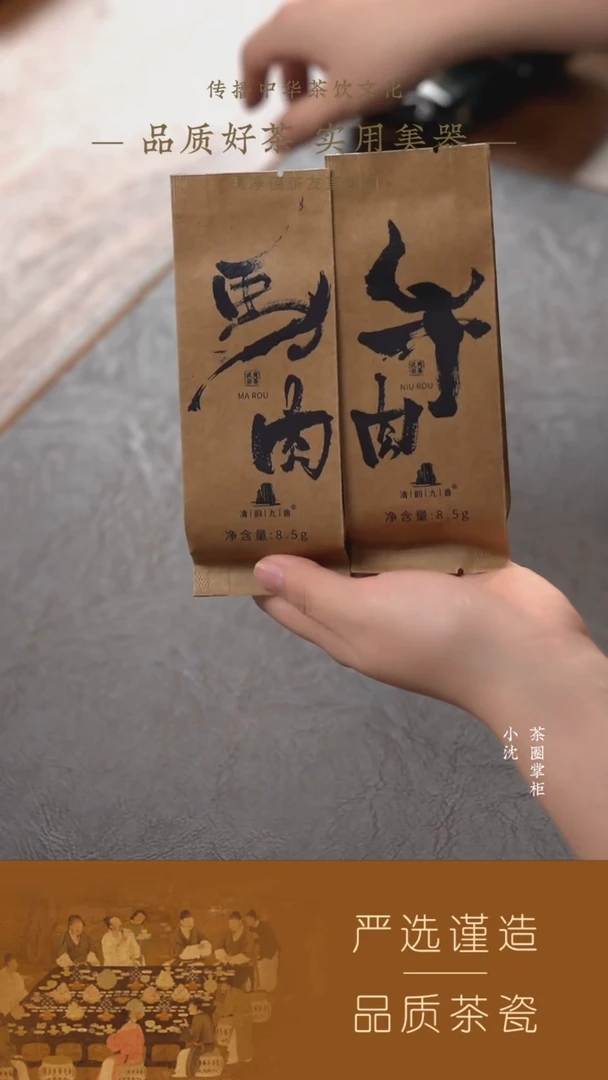 传播中华茶饮文化
— 品质好茶 实用美器 —
馬肉
MA ROU
清|韵|九|曲®
净含量:8.5g
牛肉
NIU ROU
清|韵|九|曲®
净含量:8.5g
茶圈掌柜
小沈
严选谨造
品质茶瓷